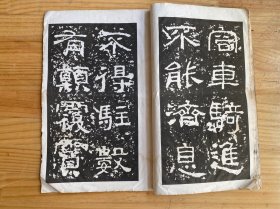 容車騎進
不能濟息
不得駐數
有顛覆霣